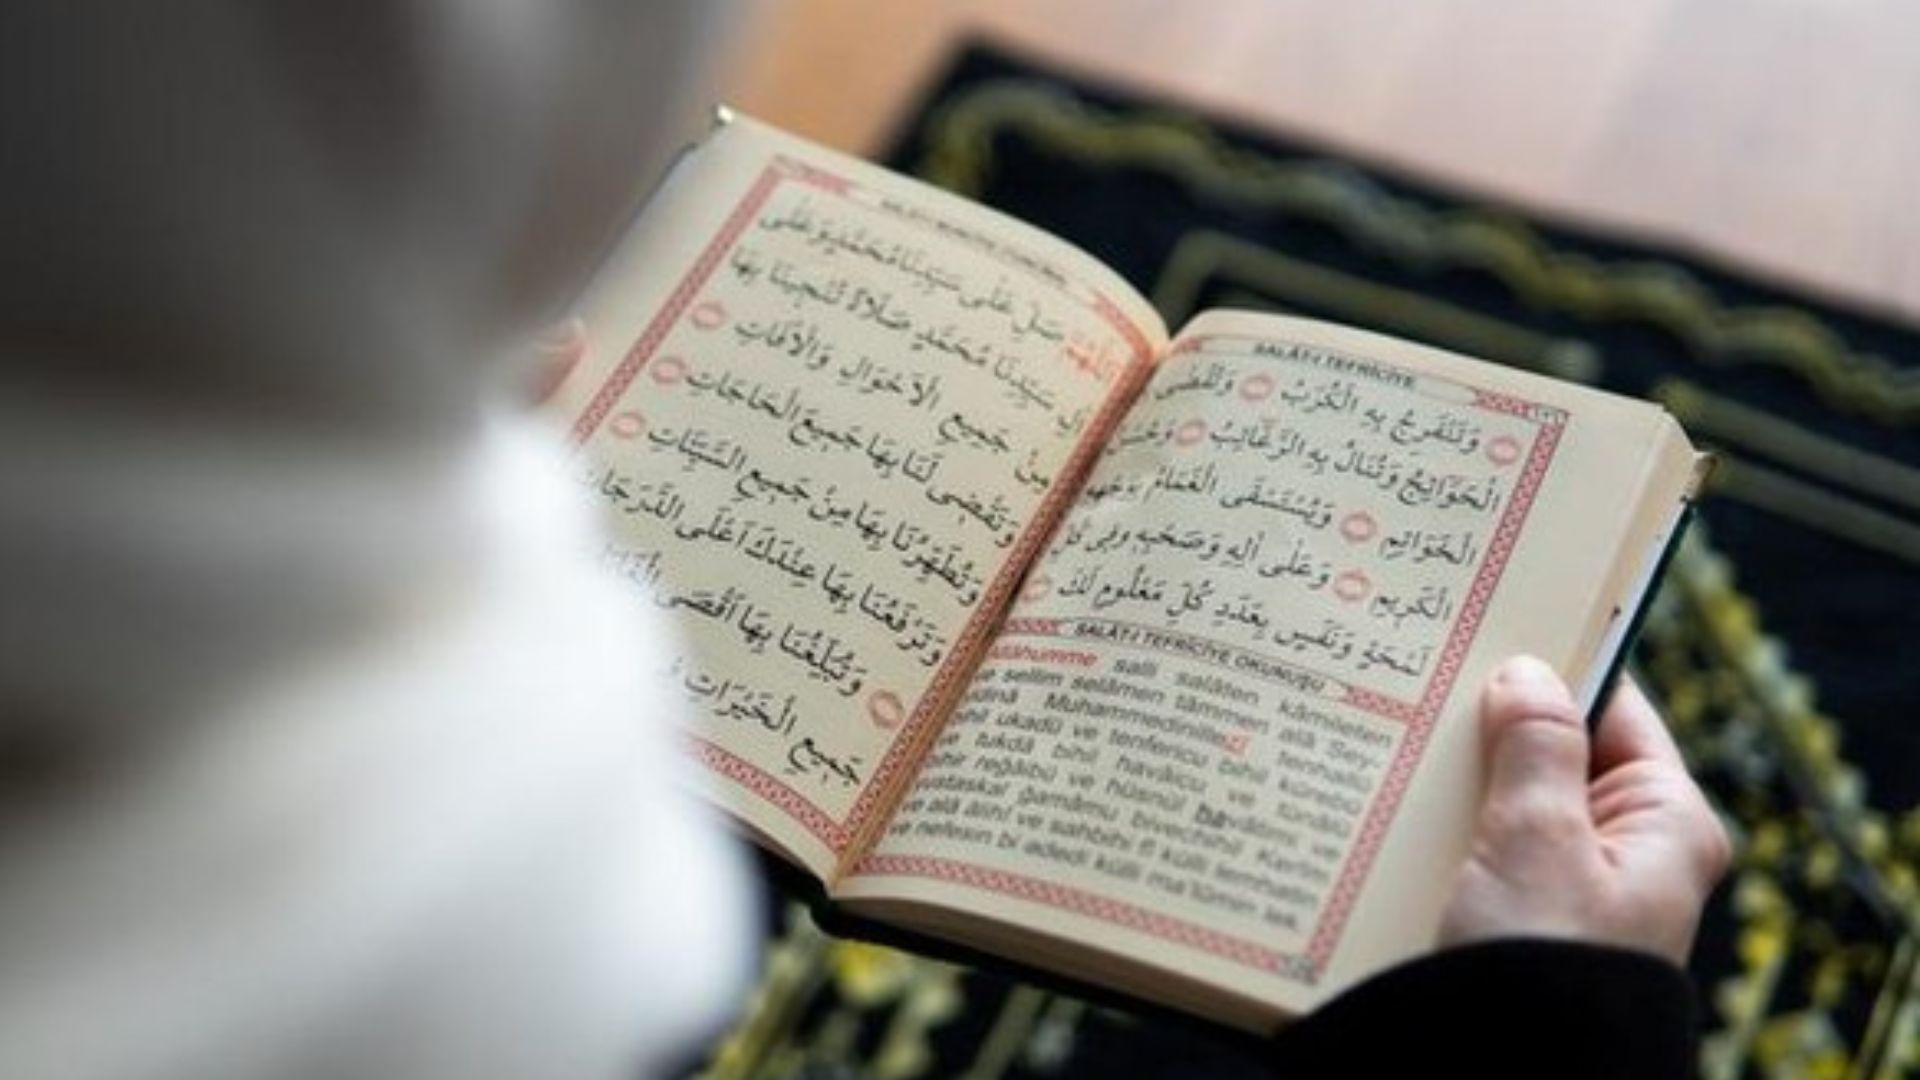 SALÂT-I TEFRİCİYE
وَتَنْفَرِجُ بِهِ الْكُرَبُ وَتُقْضٰى
الْحَوَٓائِجُ وَتُنَالُ بِهِ الرَّغَٓائِبُ وَحُسْنُ
الْخَوَاتِيمِ وَيُسْتَسْقَى الْغَمَامُ بِوَجْهِهِ
الْكَرِيمِ وَعَلٰى اٰلِهِ وَصَحْبِهِ فِى كُلِّ
لَمْحَةٍ وَنَفَسٍ بِعَدَدِ كُلِّ مَعْلُومٍ لَكَ
SALÂT-I TEFRİCİYE OKUNUŞU
Allâhumme salli salâten kâmileten
ve sellim selâmen tâmmen alâ Sey-
dinâ Muhammedinillezî tenhallü
bihil ukadü ve tenfericu bihil kürebü
ve tukdâ bihil havâicu ve tünâlü
bihir reğâibü ve hüsnül havâtimi ve
yustaskal ğamâmu bivechihil Kerîmi
ve alâ âlihî ve sahbihî fî külli lemhatin
ve nefesin bi adedi külli ma'lûmin lek.
اَللّٰهُمَّ صَلِّ عَلٰى سَيِّدِنَا مُحَمَّدٍ وَعَلٰى
اٰلِ سَيِّدِنَا مُحَمَّدٍ صَلَاةً تُنْجِينَا بِهَا
مِنْ جَمِيعِ الْاَحْوَالِ وَالْاٰفَاتِ
وَتَقْضِى لَنَا بِهَا جَمِيعَ الْحَاجَاتِ
وَتُطَهِّرُنَا بِهَا مِنْ جَمِيعِ السَّيِّئَاتِ
وَتَرْفَعُنَا بِهَا عِنْدَكَ اَعْلَى الدَّرَجَا
وَتُبَلِّغُنَا بِهَا اَقْصَى
جَمِيعِ الْخَيْرَاتِ